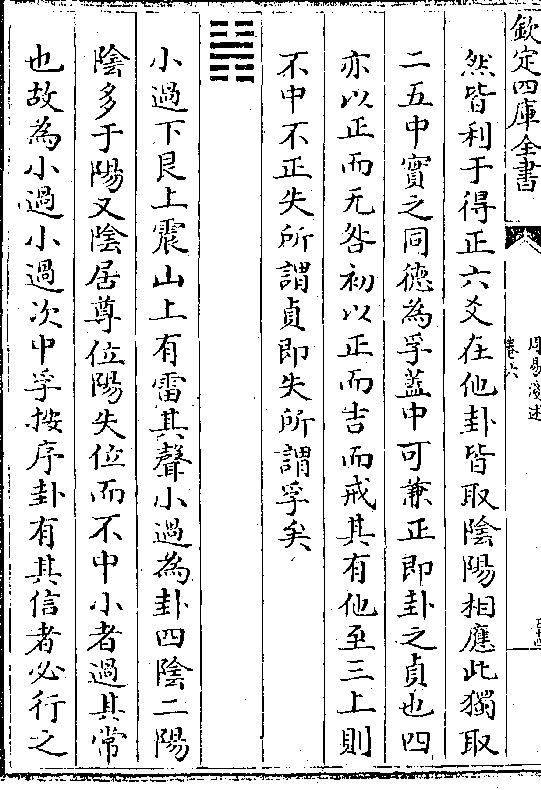 欽定四庫全書
周易淺述
卷六
然皆利于得正六爻在他卦皆取陰陽相應此獨取
二五中實之同德為孚蓋中可兼正即卦之貞也四
亦以正而无咎初以正而吉而戒其有他至三上則
不中不正失所謂貞即失所謂孚矣
小過下艮上震山上有雷其聲小過為卦四陰二陽
陰多于陽又陰居尊位陽失位而不中小者過其常
也故為小過小過次中孚按序卦有其信者必行之